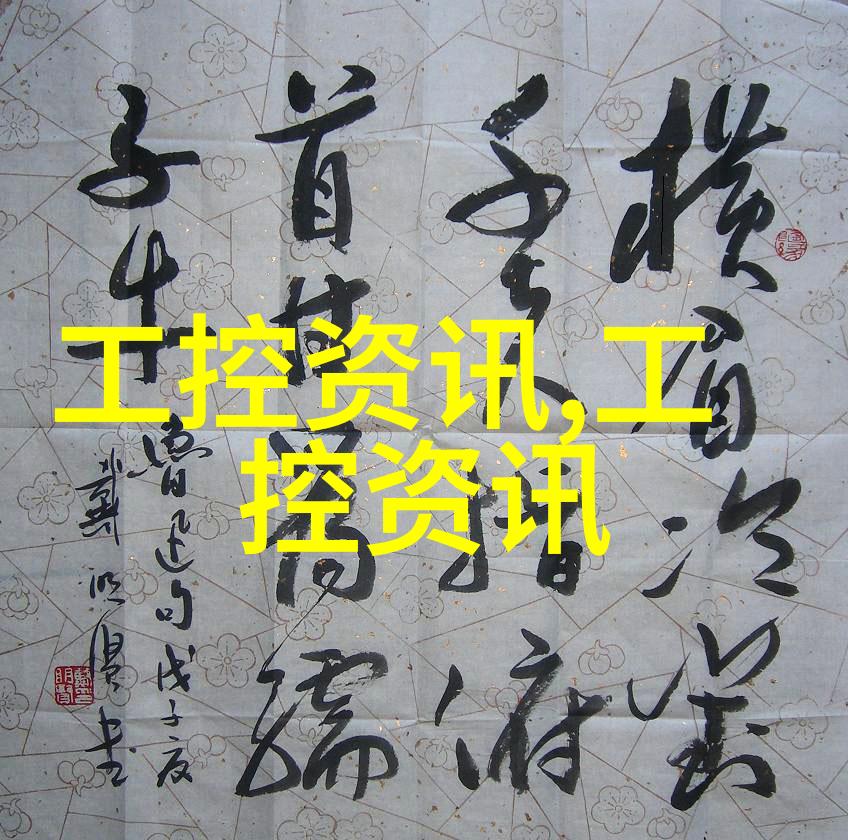 工控资讯,工
控资讯
横眉冷對
千夫指俯
首甘為孺
子牛
魯迅句戊子夏